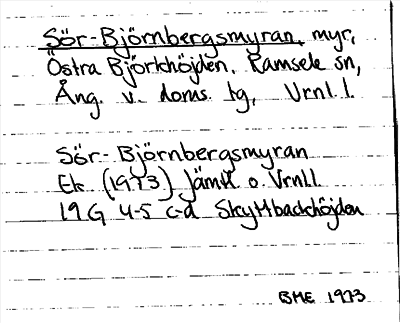 Sör-Björnbergsmyran, myr,
Östra Björkhöjden, Ramsele sn,
Ång. v. doms. tg, Vrnl. l.
Sör-Björnbergsmyran
Ek (1973) Jämtl o. Vrnl l
19 G 4-5 c-d Skyttbackhöjden
BME 1973